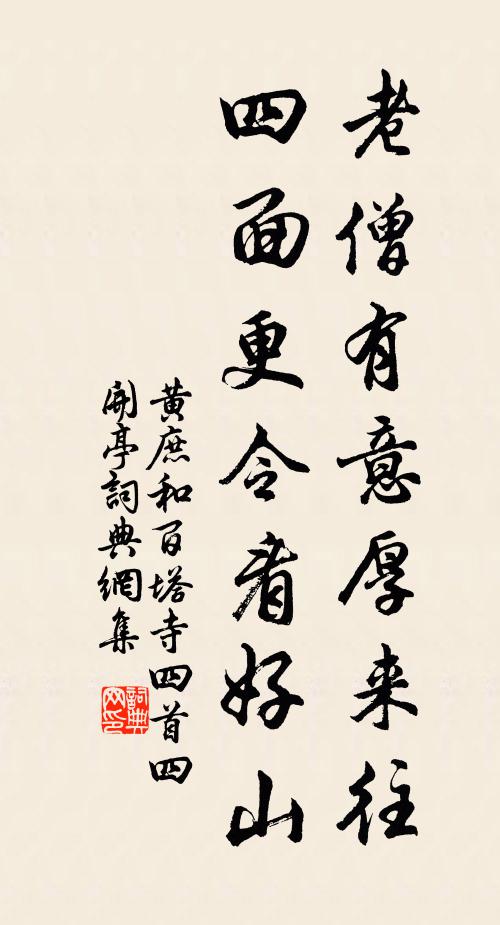 老僧有意厚来往
四面更令看好山
黄庶和百塔寺四首四
開亭詞典網集
詞典网印